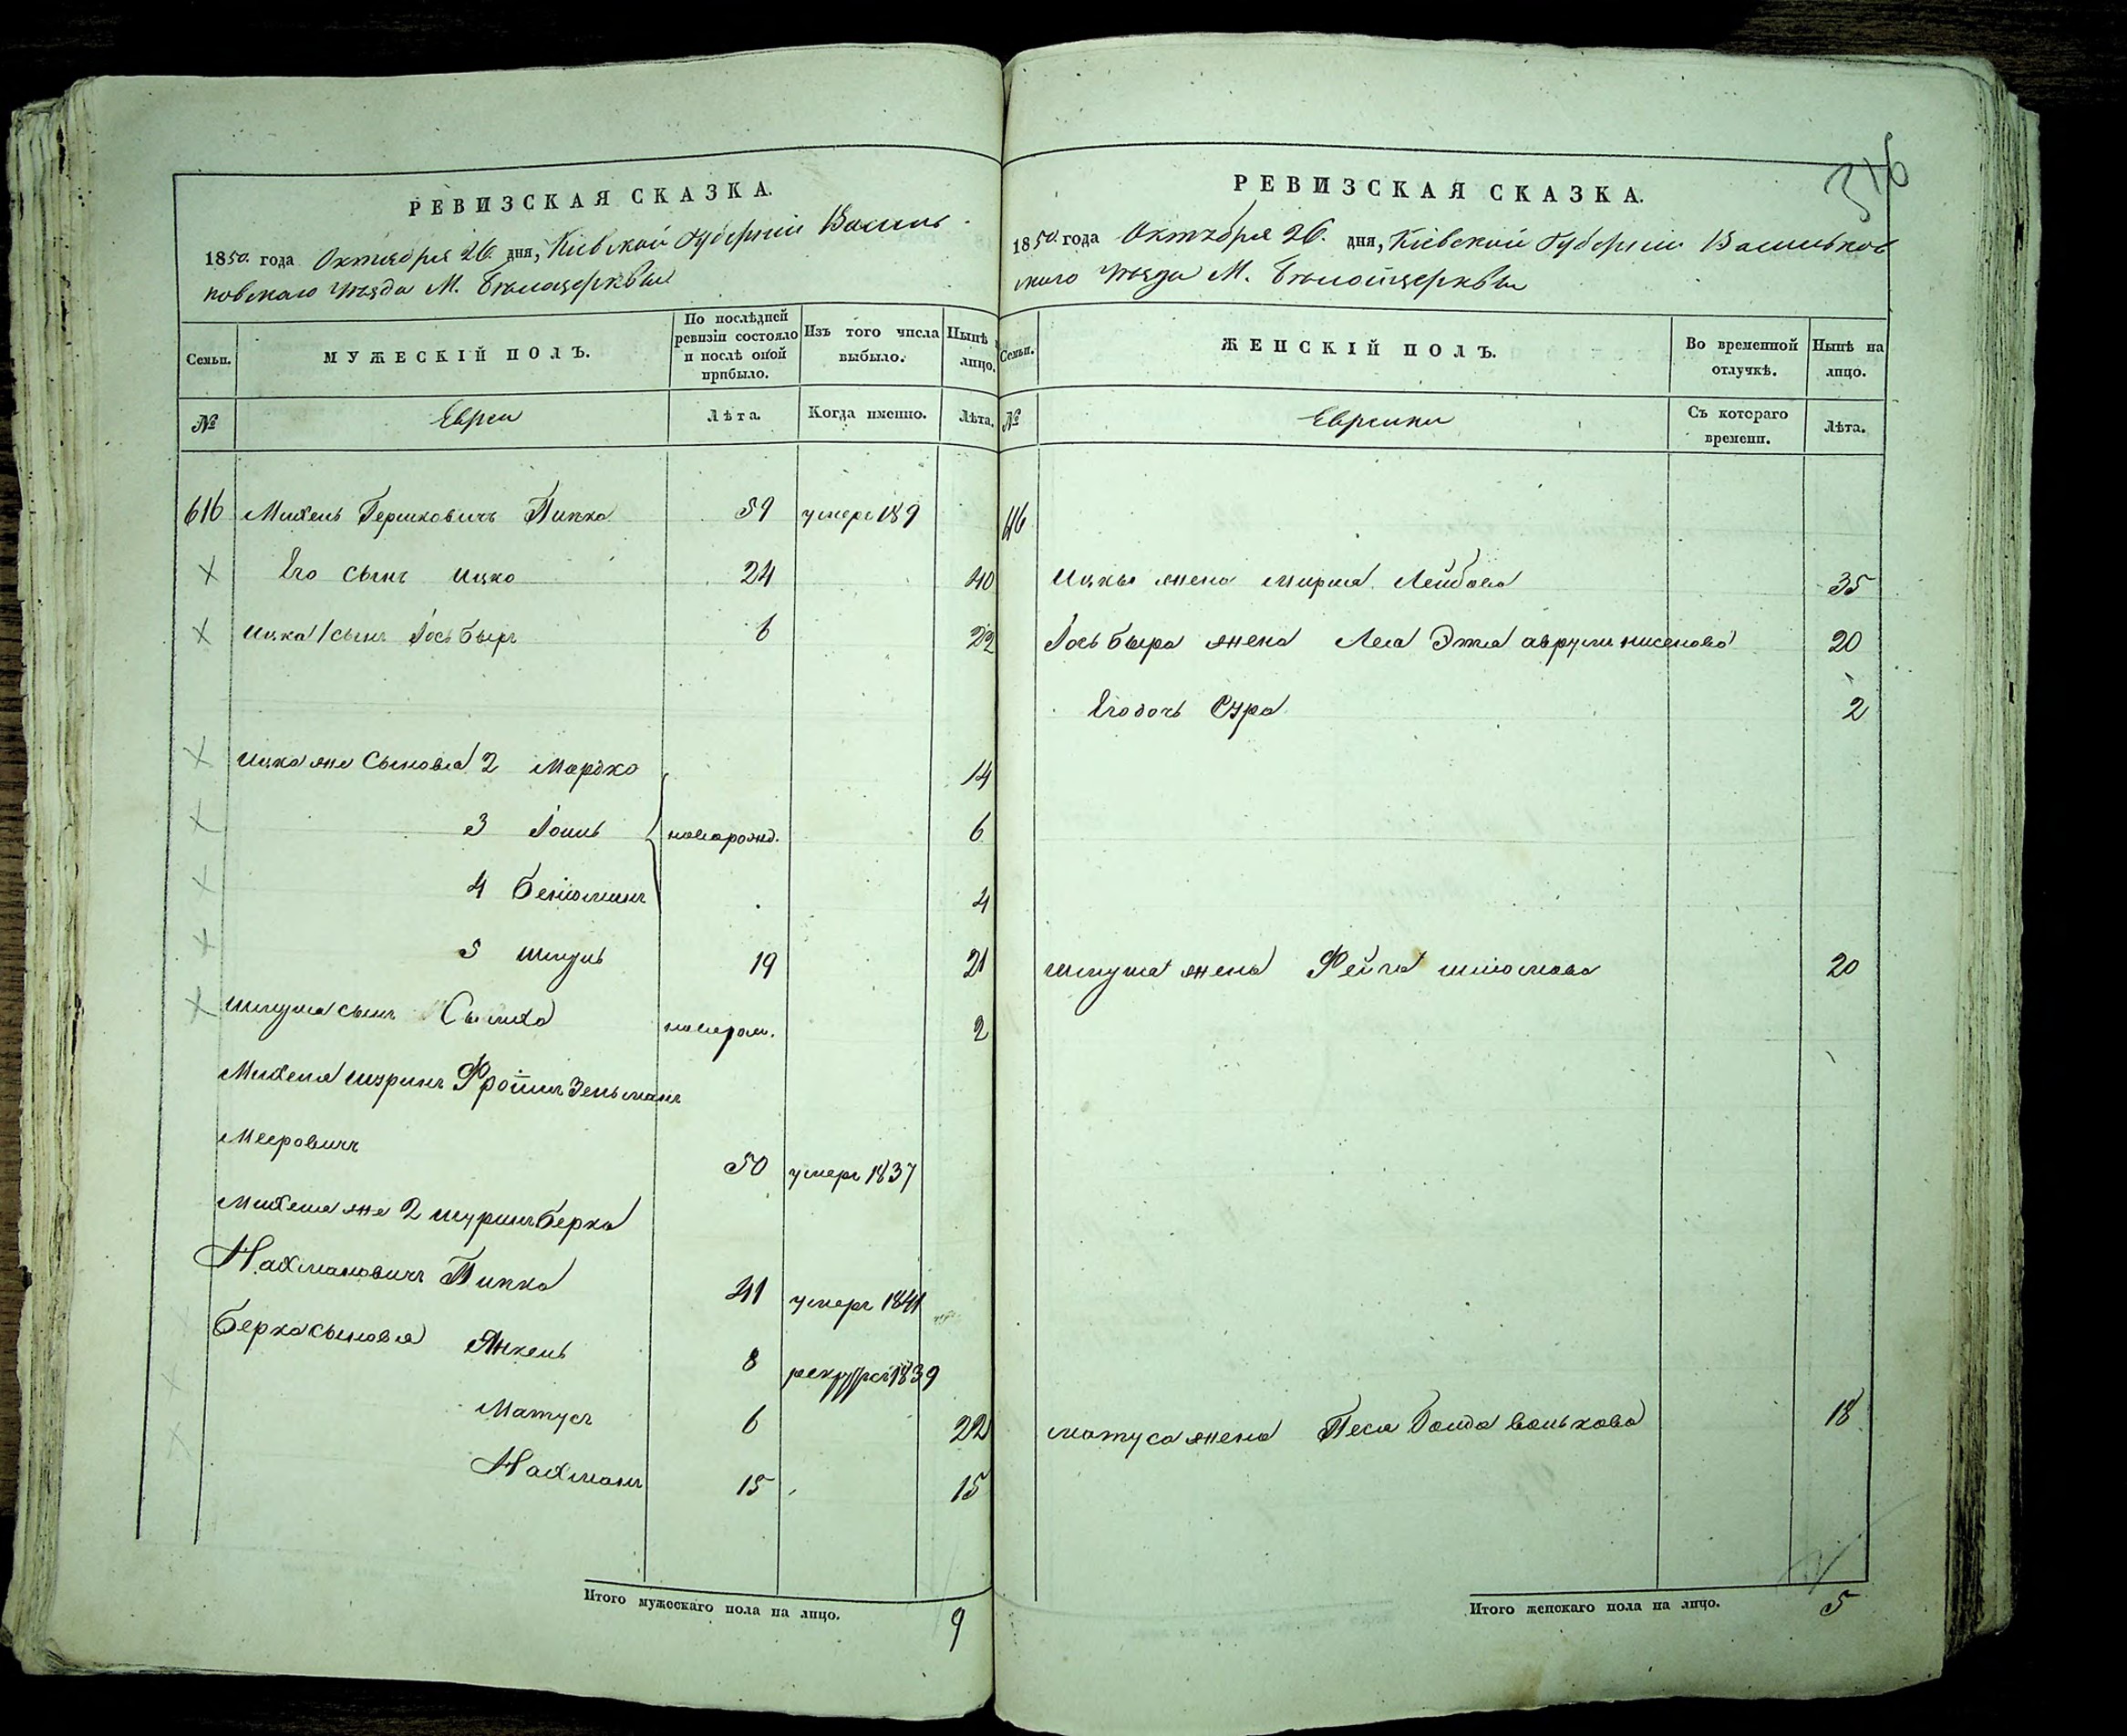 316
РЕВИЗСКАЯ СКАЗКА.
1850. года Октября 26. дня, Кіевской Губерніи Василь-
ковскаго уѣзда М. Бѣлоцерквы
Семьи. МУЖЕСКІЙ ПОЛЪ. По послѣдней ревизіи состояло и послѣ оной прибыло. Изъ того числа выбыло. Нынѣ лицо.
№ Евреи Лѣта. Когда именно. Лѣта.
616 Михель Гершковичъ Пипко 59 умеръ 189
Его сынъ Ицко 24 40
Ицка 1 сынъ Іось Беръ 6 22
Ицка же сыновья 2 Мордко 14
3 Іоиль новорожд. 6
4 Беніоминъ 4
5 Шмуль 19 21
Шмуля сынъ новорож. 2
Михеля шуринъ Фроимъ Зельманъ
Мееровичъ 50 умеръ 1837
Михеля же 2 шуринъ Берко
Нахмановичъ Пипко 41 умеръ 1841
Берка сыновья Янкель 8 рекрутъ 1839
Матусъ 6 22
Нахманъ 15 15
Итого мужескаго пола на лицо. 9
РЕВИЗСКАЯ СКАЗКА.
1850. года Октября 26. дня, Кіевской Губерніи Васильков
скаго уѣзда М. Бѣлоцерквы
Семьи. ЖЕНСКІЙ ПОЛЪ. Во временной отлучкѣ. Нынѣ на лицо.
№ Еврейки Съ котораго времени. Лѣта.
616
Ицки жена Лейбова 35
Іось Бера жена Лея Этля 20
Его дочь Сура 2
Шмуля жена Фейга Шліомова 20
Матуса жена Песя Волькова 18
Итого женскаго пола на лицо. 5